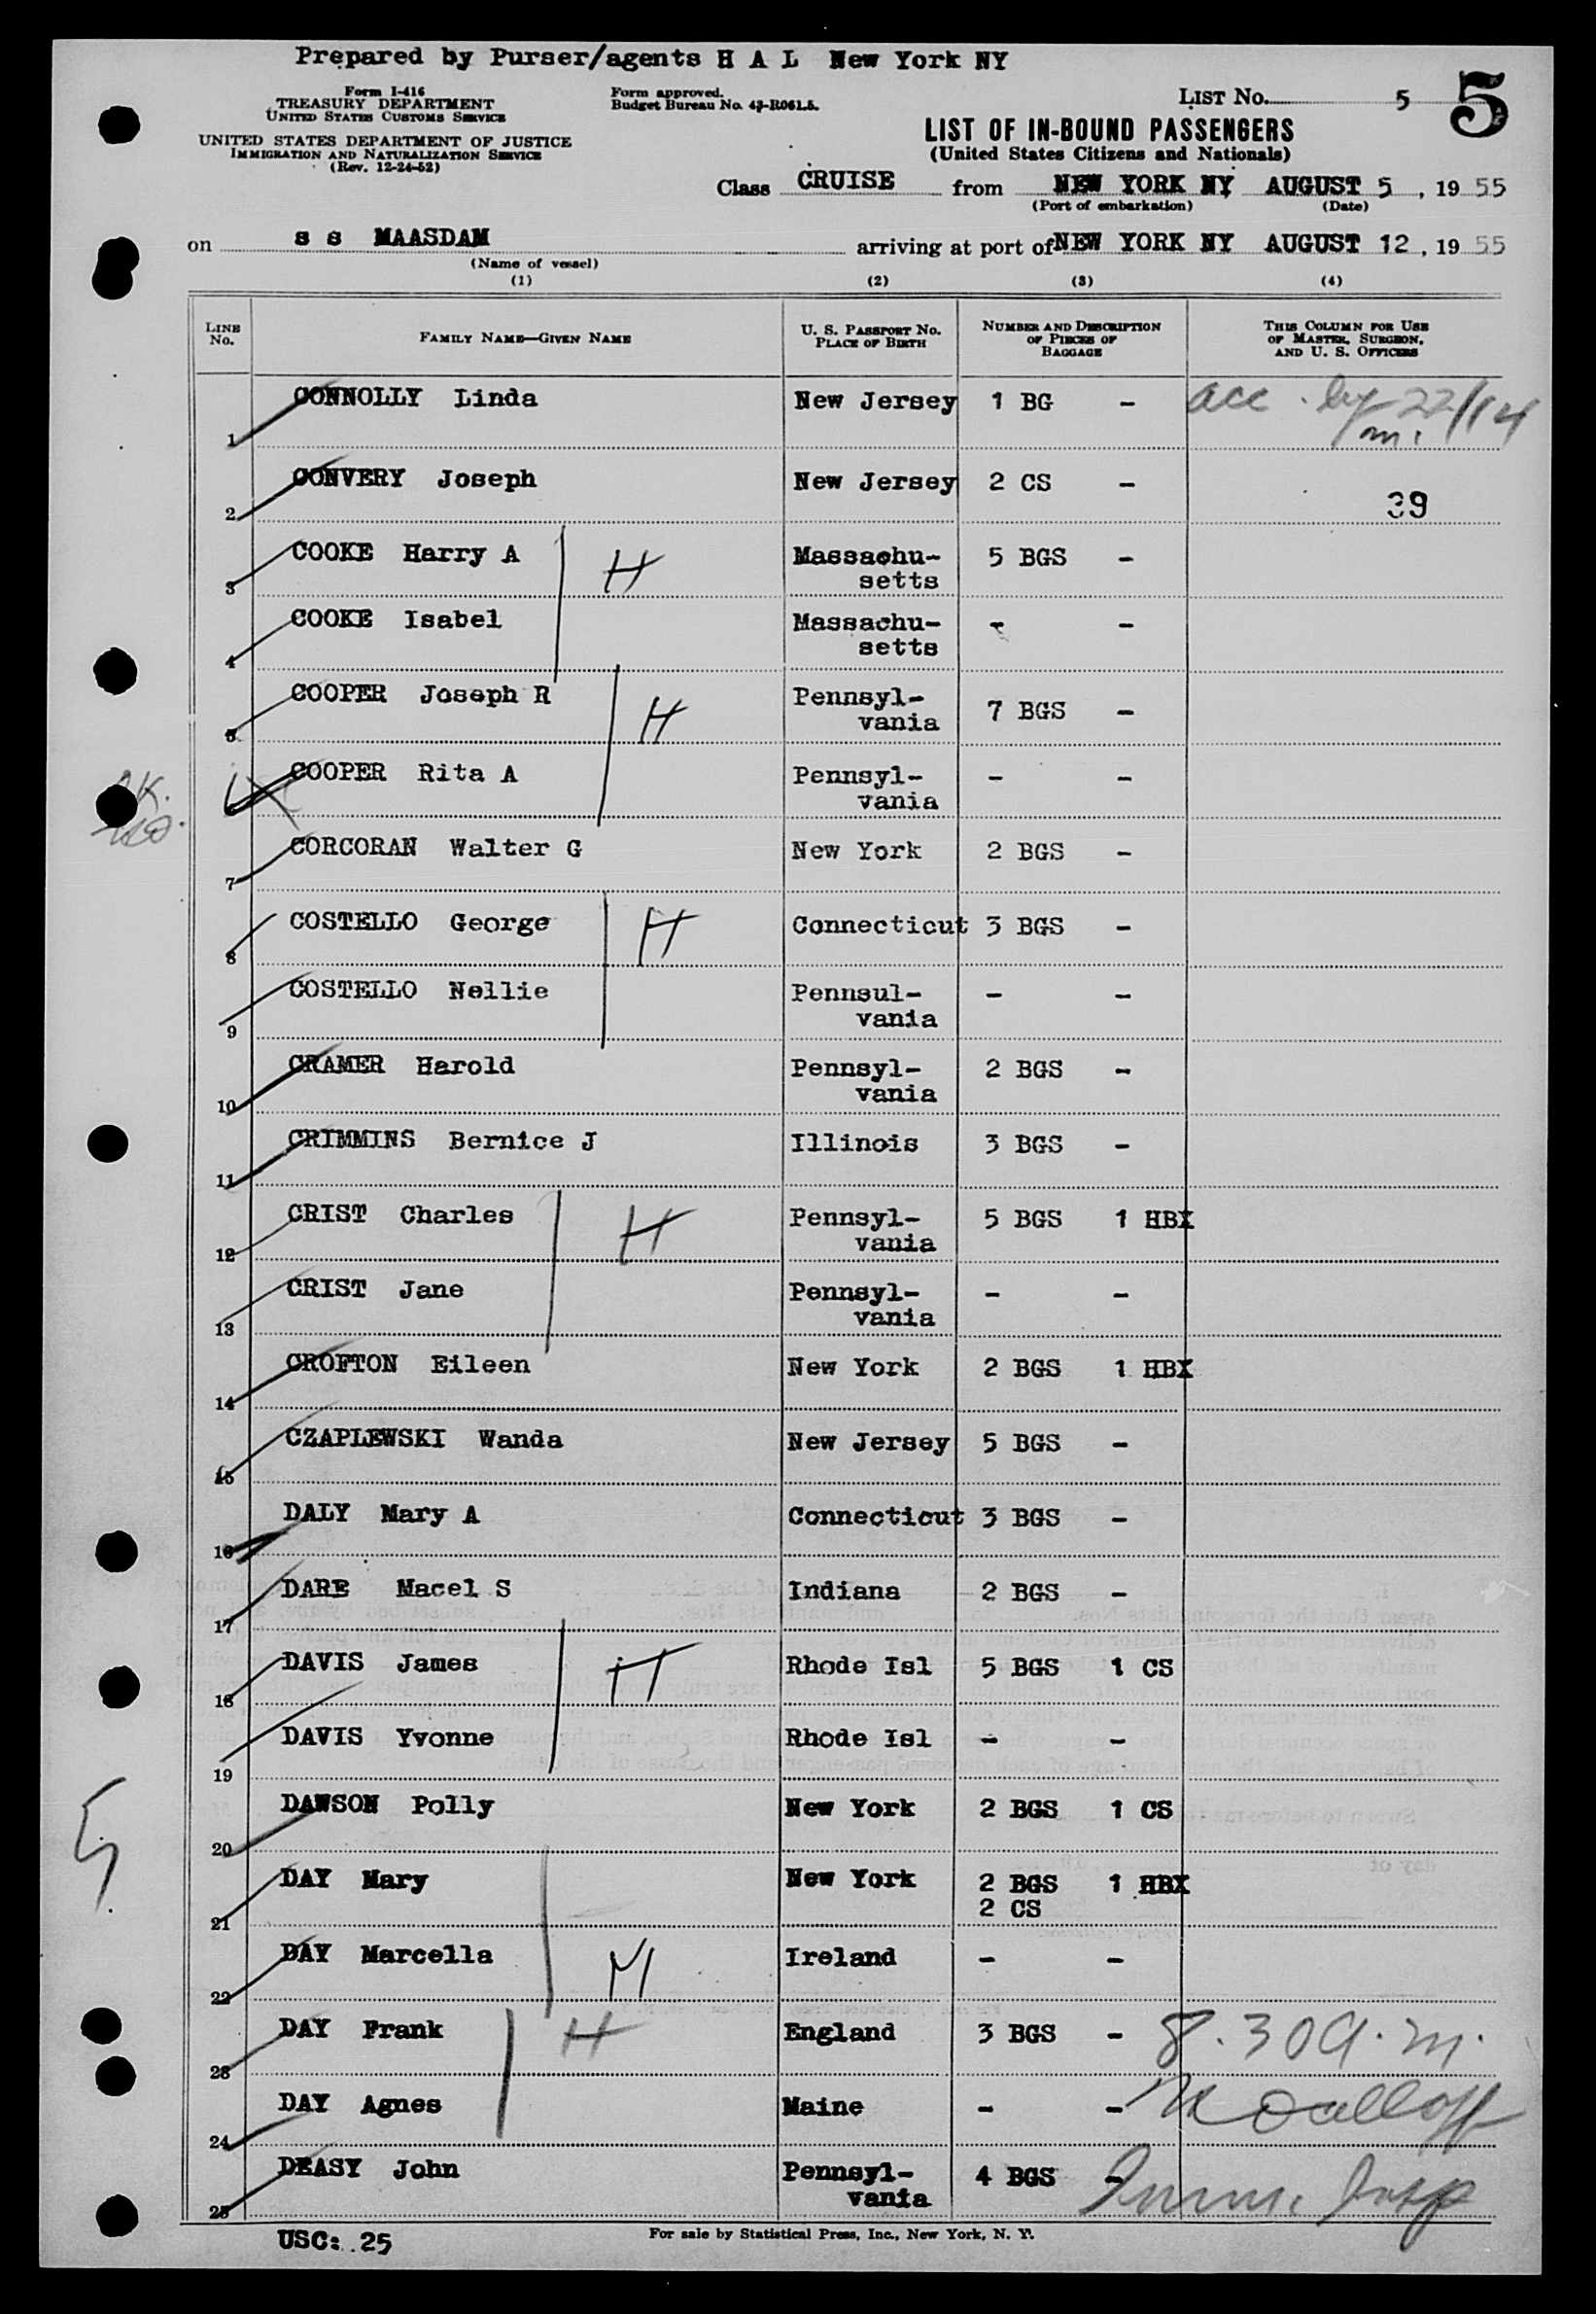 Prepared by Purser/agents H A L New York NY
Form I-416
TREASURY DEPARTMENT
UNITED STATES CUSTOMS SERVICE
UNITED STATES DEPARTMENT OF JUSTICE
IMMIGRATION AND NATURALIZATION SERVICE
(Rev. 12-24-52)
Form approved.
Budget Bureau No. 43-R061.5.
LIST NO. 5 5
LIST OF IN-BOUND PASSENGERS
(United States Citizens and Nationals)
Class CRUISE from NEW YORK NY AUGUST 5, 19 55
(Port of embarkation) (Date)
on s s MAASDAM arriving at port of NEW YORK NY AUGUST 12, 19 55
(Name of vessel)
(1) (2) (3) (4)
LINE No. FAMILY NAME—GIVEN NAME U. S. PASSPORT NO. PLACE OF BIRTH NUMBER AND DESCRIPTION OF PIECES OF BAGGAGE THIS COLUMN FOR USE OF MASTER, SURGEON, AND U. S. OFFICERS
1 CONNOLLY Linda New Jersey 1 BG - acc. by 22/14
m.
2 CONVERY Joseph New Jersey 2 CS - 39
3 COOKE Harry A H Massachu-setts 5 BGS -
4 COOKE Isabel Massachu-setts - -
5 COOPER Joseph R H Pennsyl-vania 7 BGS -
COOPER Rita A Pennsyl-vania - -
7 CORCORAN Walter G New York 2 BGS -
8 COSTELLO George H Connecticut 3 BGS -
9 COSTELLO Nellie Pennsul-vania - -
10 CRAMER Harold Pennsyl-vania 2 BGS -
11 CRIMMINS Bernice J Illinois 3 BGS -
12 CRIST Charles H Pennsyl-vania 5 BGS 1 HBX
13 CRIST Jane Pennsyl-vania - -
14 CROFTON Eileen New York 2 BGS 1 HBX
15 CZAPLEWSKI Wanda New Jersey 5 BGS -
16 DALY Mary A Connecticut 3 BGS -
17 DARE Macel S Indiana 2 BGS -
18 DAVIS James H Rhode Isl 5 BGS 1 CS
19 DAVIS Yvonne Rhode Isl - -
20 DAWSON Polly New York 2 BGS 1 CS
21 DAY Mary New York 2 BGS 1 HBX
2 CS
22 DAY Marcella M Ireland - -
23 DAY Frank H England 3 BGS - 8.30 a.m.
24 DAY Agnes Maine - -
25 DEASY John Pennsyl-vania 4 BGS - Imm. Insp
USC: 25
For sale by Statistical Press, Inc., New York, N. Y.